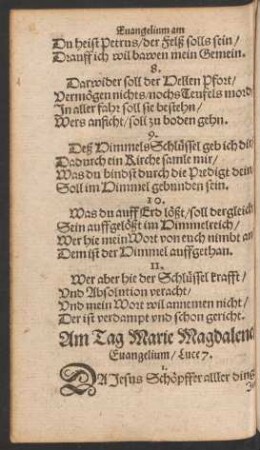 Euangelium am
Du heist Petrus/ der Felß solls sein/
Drauff ich wil bawen mein Gemein.
8.
Darwider soll der Hellen Pfort/
Vermögen nichts/ nochs Teufels mord
In aller fahr soll sie bestehn/
Wers anficht/ soll zu boden gehn.
9.
Deß Himmels Schlüssel geb ich dir
Dadurch ein Kirche samle mir/
Was du bindst durch die Predigt dein
Soll im Himmel gebunden sein.
10.
Was du auff Erd lößt/ soll dergleich
Sein auffgelößt im Himmelreich/
Wer hie mein Wort von euch nimbt an
Dem ist der Himmel auffgethan.
11.
Wer aber hie der Schlüssel krafft/
Vnd Absolution veracht/
Vnd mein Wort wil annemen nicht/
Der ist verdampt vnd schon gericht.
Am Tag Marie Magdalene
Euangelium/ Luce 7.
1.
DA Jesus Schöpffer alller ding